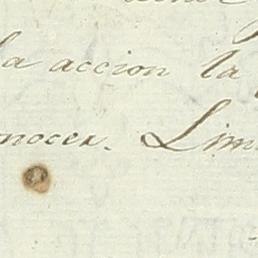 la accion la
nocer. Lim